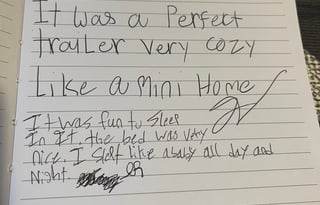 It was a Perfect
trailer very cozy
Like a mini Home
It was fun to sleep
In It. the bed was very
nice. I sleft like a baby all day and
Night.